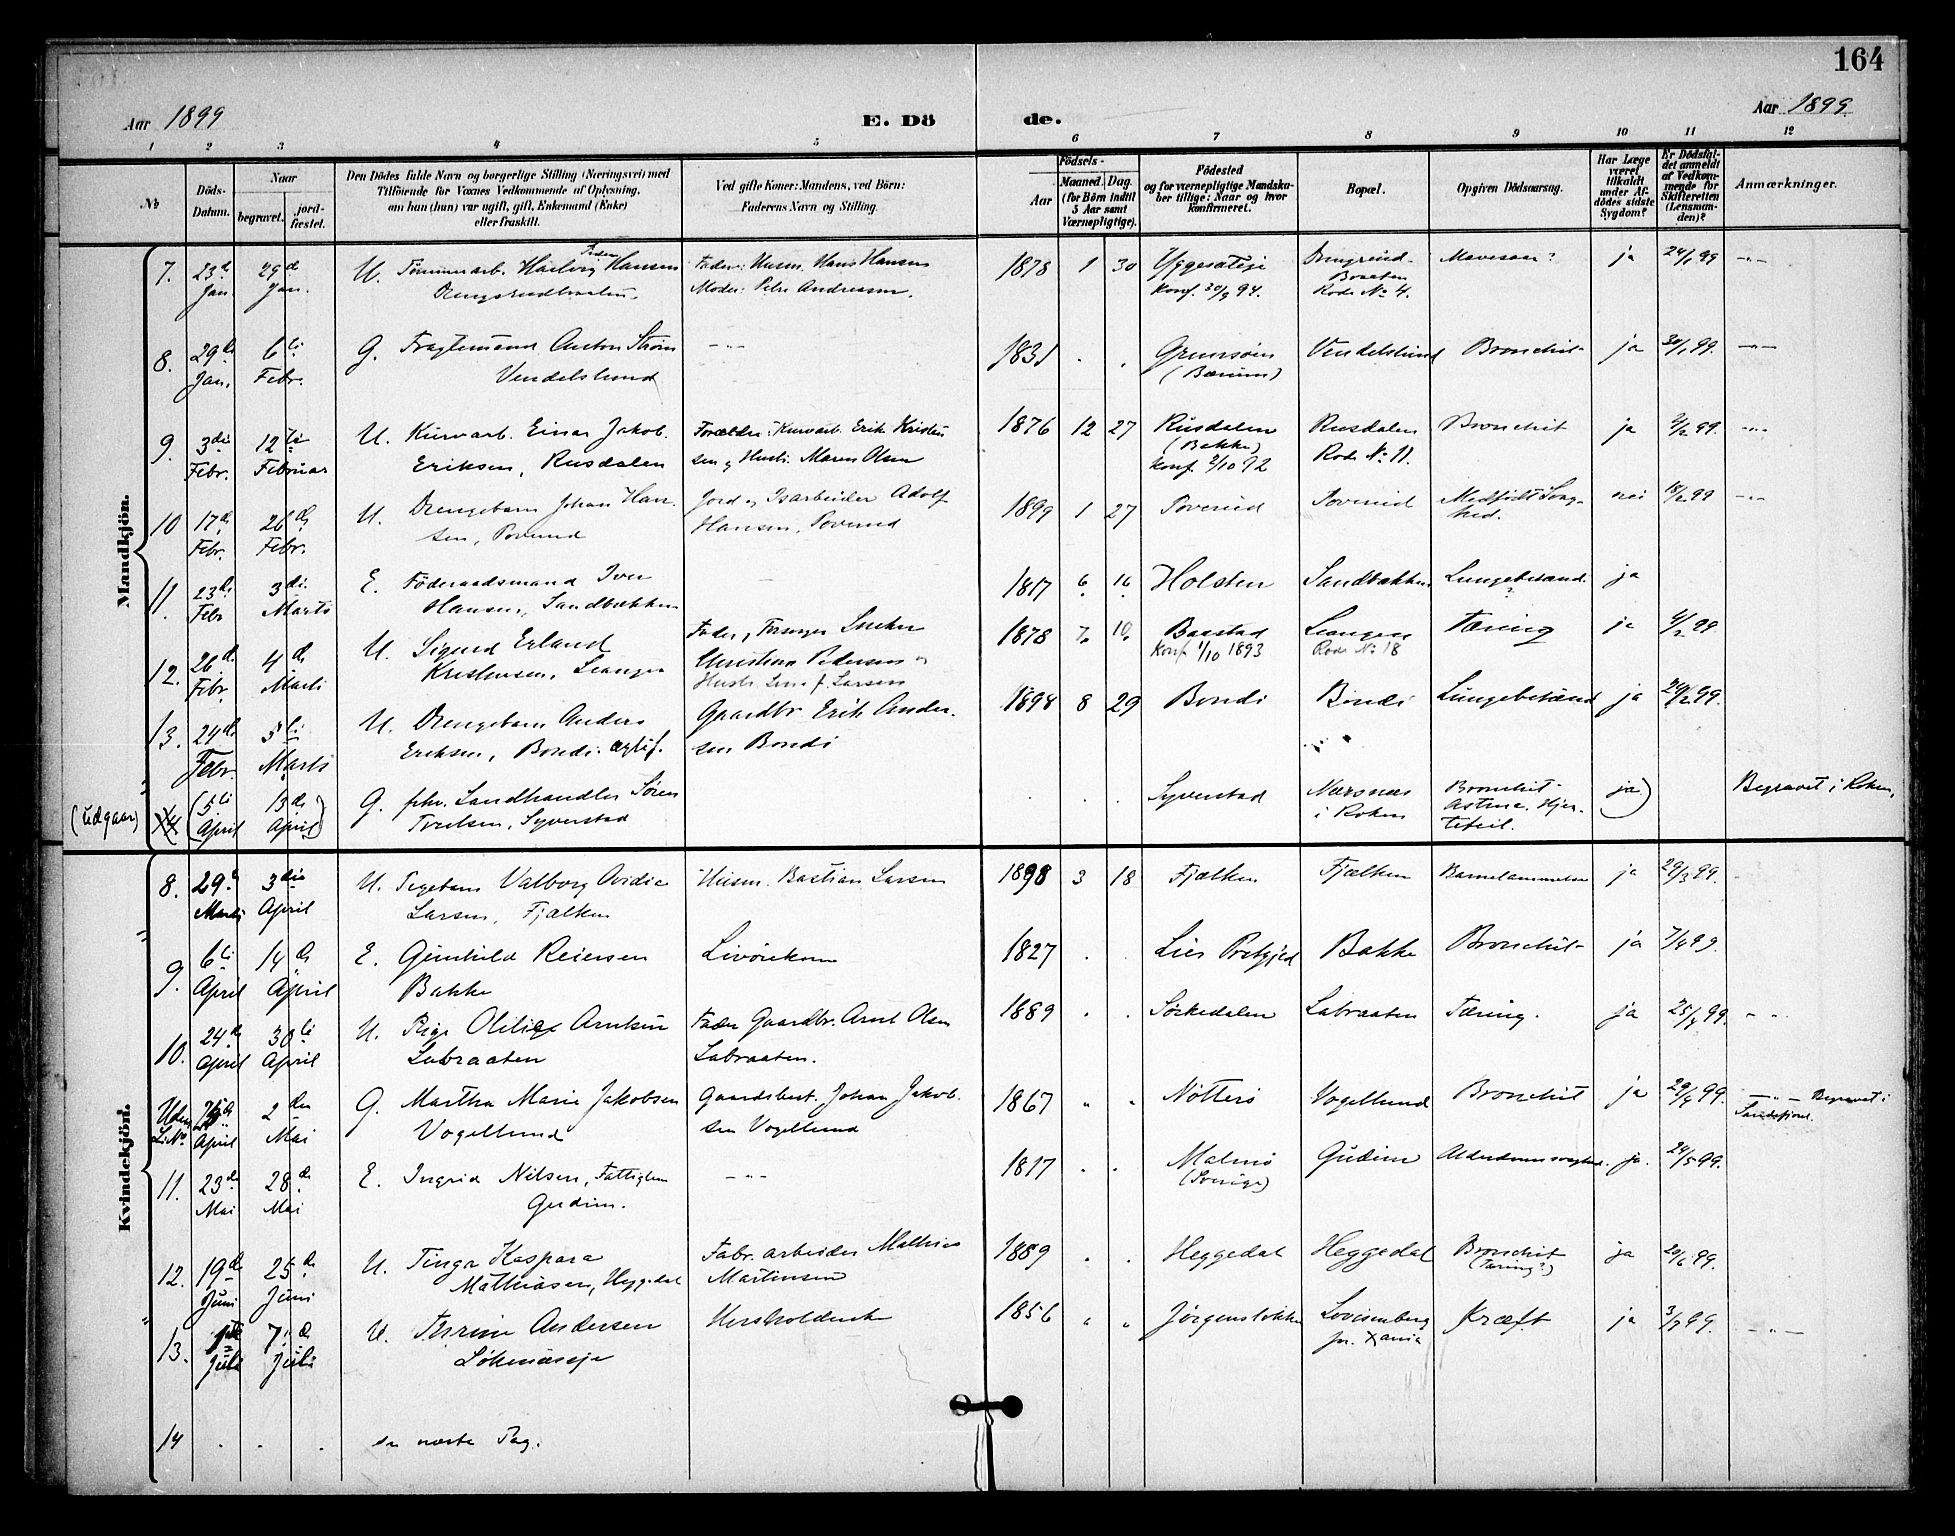 164
Aar 1899
E. Dö
de.
Aar 1899.
1 2 3 4 5 6 7 8 9 10 11 12
No
Döds-
Datum.
Naar
begravet.
jord-
fæstet.
Den Dödes fulde Navn og borgerlige Stilling (Næringsvei) med
Tilföiende for Voxnes Vedkommende af Oplysning,
om han (hun) var ugift, gift, Enkemand (Enke)
eller fraskilt.
Ved gifte Koner: Mandens, ved Börn:
Faderens Navn og Stilling.
Födsels-
Aar
Maaned. Dag.
(for Börn indtil
5 Aar samt
Værnepligtige).
Födested
og for værnepligtige Mandska-
ber tillige: Naar og hvor
konfirmeret.
Bopæl.
Opgiven Dödsaarsag.
Har Læge
været
tilkaldt
under Af-
dödes sidste
Sygdom?
Er Dödsfal-
det anmeldt
af Vedkom-
mende for
Skifteretten
(Lensman-
den)?
Anmærkninger.
Mandkjön.
7. 23de Jan. 29de Jan.
U. Tømmerarb. Hansen
Fader: Husm. Hans Hansen
Moder: Andreassen.
1878 1 30
Konf. 30/9 94.
Rode No 4.
Mavesaar?
ja 24/1 99 -"-
8. 29de Jan. 6te Febr.
G. Fragtemand Anton Strøm
Vendelslund
-"-
1831 . .
(Bærum)
Vendelslund
Bronchit-
ja 30/1 99. -"-
9. 3die Febr. 12te Februar
U. Kurvarb. Einar Jakob
Eriksen, Rusdalen
Forældre: Kurvarb. Erik Kristen
sen og Hustr. Maren Olsen
1876 12 27
Rusdalen
(Bakke)
Konf. 2/10 92
Rusdalen
Rode No 11.
Bronchit
ja 4/2 99. -"-
10 17de Febr. 26de Febr.
U. Drengebarn Johan Han-
sen, Poverud
Jord og Isarbeider Adolf
Hansen, Poverud
1899 1 27
Poverud
Poverud
Medfødt Svag-
hed.
nei 18/2 99 -"-
11. 23de Febr 3die Marts
E. Föderaadsmand Iver
Hansen, Sandbækken
1817 6 16
Holsten
Sandbækken
Lungebetænd.
ja
12. 26de Febr. 4de Marts
U. Sigurd Erland
Kristensen, Leangen
Christian Pedersen og
Larsen
1878 7. 10.
Baastad
Konf 1/10 1893
Leangen
Rode No 18
Tæring
ja
13. 24de Febr. 5te Marts
U. Drengebarn Anders
Eriksen, Bondi. ægtef.
Gaardbr. Erik Ander-
sen Bondi
1898 8 29
Bondi
Bondi
Lungebetænd
ja
(udgaar) 14 (5te April 13de April)
G. fhv. Landhandler Søren
Syverstad
. . .
Syverstad
Nærsnæs
i Røken
Bronchit-
Astma. Hjer-
tefeil.
ja)
Begravet i Røken,
Kvindekjön.
8. 29de Marts 3die April
U. Pigebarn Valborg Ovidia
Larsen, Fjælken
Husm. Bastian Larsen
1898 3 18
Fjælken
Fjælken
Barnelammelse
ja 29/3 99.
9. 6te April 14de April
E. Gunhild Reiersen
Bakke
1827 . .
Lier Prstgjeld
Bakke
Bronchit-
ja 7/4 99.
10. 24de April 30te April
U. Pige Otilie Arntsen
Labraaten
Fader Gaardbr. Arnt Olsen
Labraaten.
1889 . .
Sørkedalen
Labraaten
Tæring.
ja 25/4 99. -"-
Uden L.No April 2den Mai
G. Martha Marie Jakobsen
Vogellund
Gaardsbest. Johan Jakob-
sen Vogellund
1867 " "
Nötterö
Vogellund
Bronchit
ja 29/4 99.
-"- Begravet i
Sandefjord.
11. 23de Mai 28de Mai
E. Ingrid Nilsen, Fattiglem
Gudim.
-"-
1817 . .
Malmö
(Sverige)
Gudim
Alderdomssvaghed.
ja. 24/5 99.
12. 19de Juni 25de Juni
U. Kaspara
Mathiasen, Heggedal
Fabr. arbeider Mathias
Martinsen
1889 . .
Heggedal
Heggedal
Bronchit
(Tæring?)
ja 20/6 99.
13. 1ste Juli 7de Juli
U. Thrine Andersen
1856 " "
Jørgensløkken
Lovisenberg
Xania
Kræft
ja 3/7 99. -"-
14 . . .
se næste Pag.